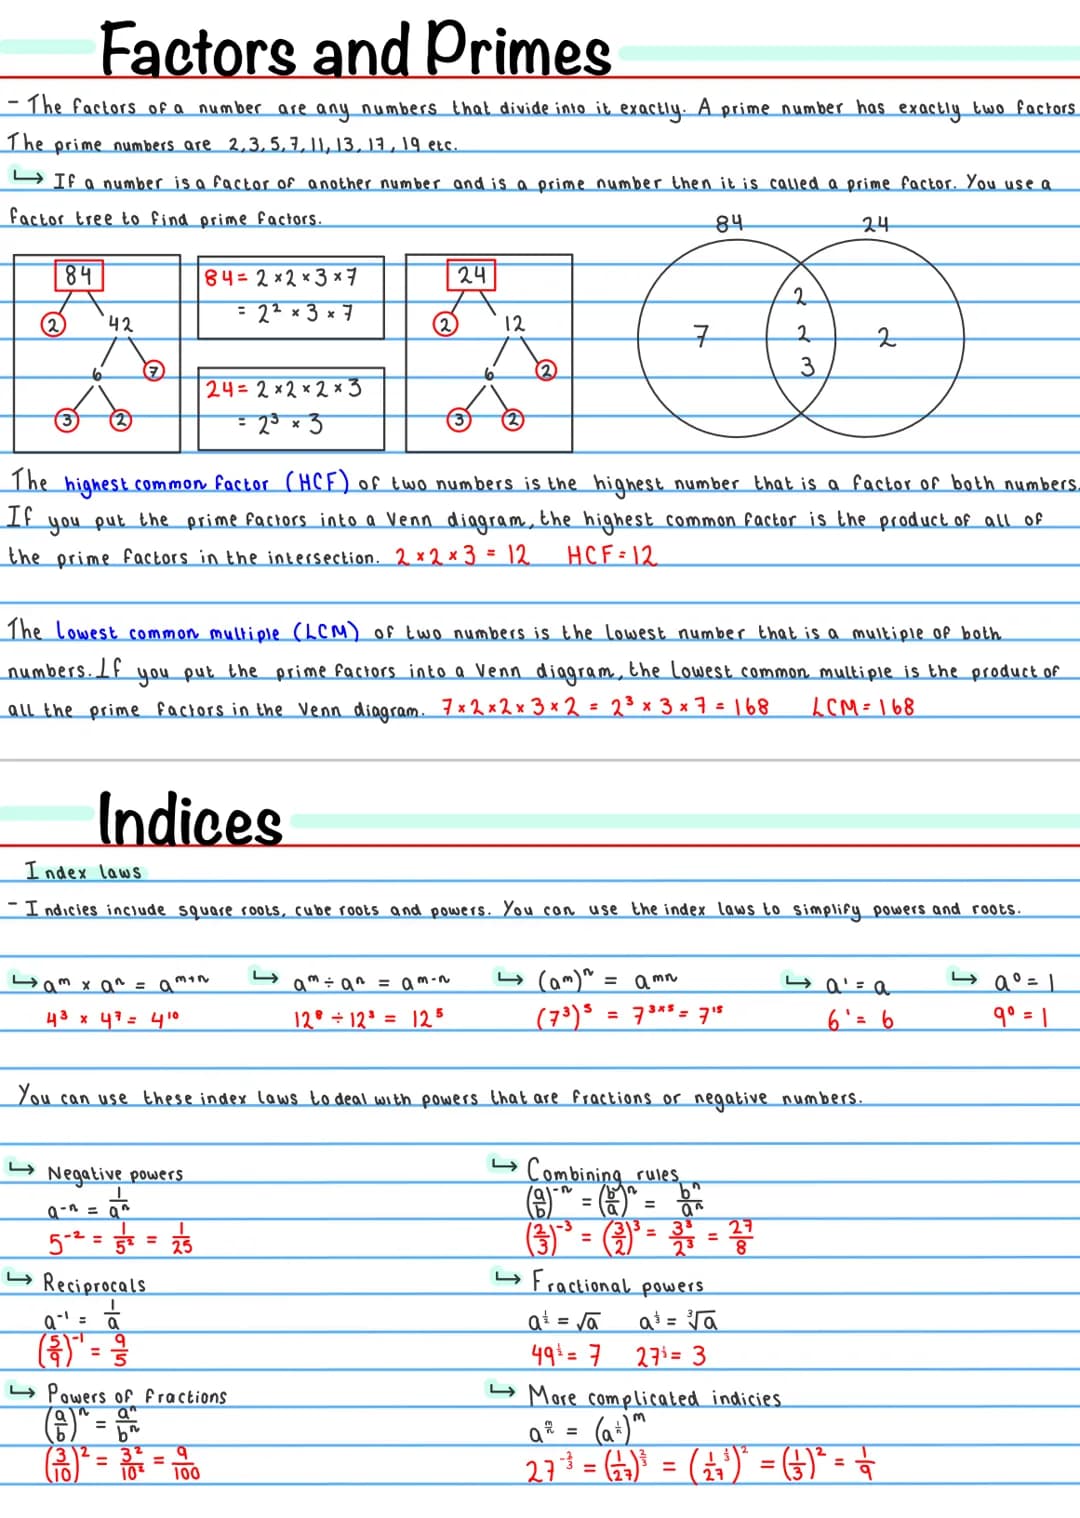 Factors and Primes
- The factors of a number are any numbers that divide into it exactly. A prime number has exactly two factors
The prime numbers are 2,3,5,7,11,13,17,19 etc.
↳ If a number is a factor of another number and is a prime number then it is called a prime factor. You use a
factor tree to find prime factors.
84 24
84
2 42
6 7
3 2
84 = 2 × 2 × 3 × 7
= 2² × 3 × 7
24 = 2 × 2 × 2 × 3
= 2³ × 3
24
2 12
6 2
3 2
7
2
2
3
2
The highest common factor (HCF) of two numbers is the highest number that is a factor of both numbers.
If you put the prime factors into a Venn diagram, the highest common factor is the product of all of
the prime factors in the intersection. 2 × 2 × 3 = 12 HCF = 12
The lowest common multiple (LCM) of two numbers is the lowest number that is a multiple of both
numbers. If you put the prime factors into a Venn diagram, the lowest common multiple is the product of
all the prime factors in the Venn diagram. 7 × 2 × 2 × 3 × 2 = 2³ × 3 × 7 = 168 LCM = 168
Indices
Index laws
- Indicies include square roots, cube roots and powers. You can use the index laws to simplify powers and roots.
↳ aᵐ × aⁿ = aᵐ⁺ⁿ ↳ aᵐ ÷ aⁿ = aᵐ⁻ⁿ ↳ (aᵐ)ⁿ = aᵐⁿ ↳ a¹ = a ↳ a⁰ = 1
4³ × 4⁷ = 4¹⁰ 12⁸ ÷ 12³ = 12⁵ (7³)⁵ = 7³ˣ⁵ = 7¹⁵ 6¹ = 6 9⁰ = 1
You can use these index laws to deal with powers that are fractions or negative numbers.
↳ Negative powers
a⁻ⁿ = 1/aⁿ
5⁻² = 1/5² = 1/25
↳ Reciprocals
a⁻¹ = 1/a
(5/9)⁻¹ = 9/5
↳ Powers of fractions
(a/b)ⁿ = aⁿ/bⁿ
(3/10)² = 3²/10² = 9/100
↳ Combining rules
(a/b)⁻ⁿ = (b/a)ⁿ = bⁿ/aⁿ
(2/3)⁻³ = (3/2)³ = 3³/2³ = 27/8
↳ Fractional powers
a^½ = √a a^⅓ = ³√a
49^½ = 7 27^⅓ = 3
↳ More complicated indicies
a^(m/n) = (a^(1/n))ᵐ
27^(-2/3) = (1/27)^(2/3) = (1/27^(1/3))² = (1/3)² = 1/9